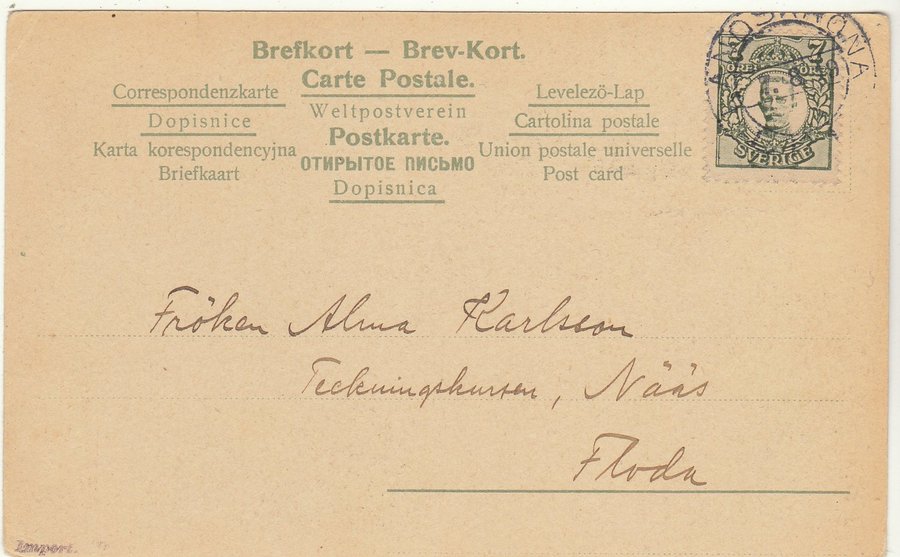 Brefkort — Brev-Kort.
Carte Postale.
Correspondenzkarte
Weltpostverein
Levelezö-Lap
Dopisnice
Postkarte.
Cartolina postale
Karta korespondencyjna
ОТКРЫТОЕ ПИСЬМО
Union postale universelle
Briefkaart
Dopisnica
Post card
LANDSKRONA
7
ÖRE
SVERIGE
Fröken Alma Karlsson
Teckningskursen, Nääs
Floda
Import.